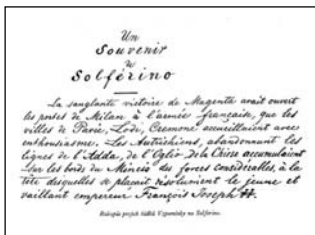 Un
Souvenir
de
Solférino
La sanglante victoire de Magenta avait ouvert
les portes de Milan à l'armée française, que les
villes de Pavie, Lodi, Cremone accueillaient avec
enthousiasme. Les Autrichiens, abandonnant les
lignes de l'Adda, de l'Oglio, de la Chiese accumulaient
sur les bords du Mincio des forces considérables, à la
tête desquelles se placait résolument le jeune et
vaillant empereur François Joseph
Rukopis prvých řádků Vzpomínky na Solferino.